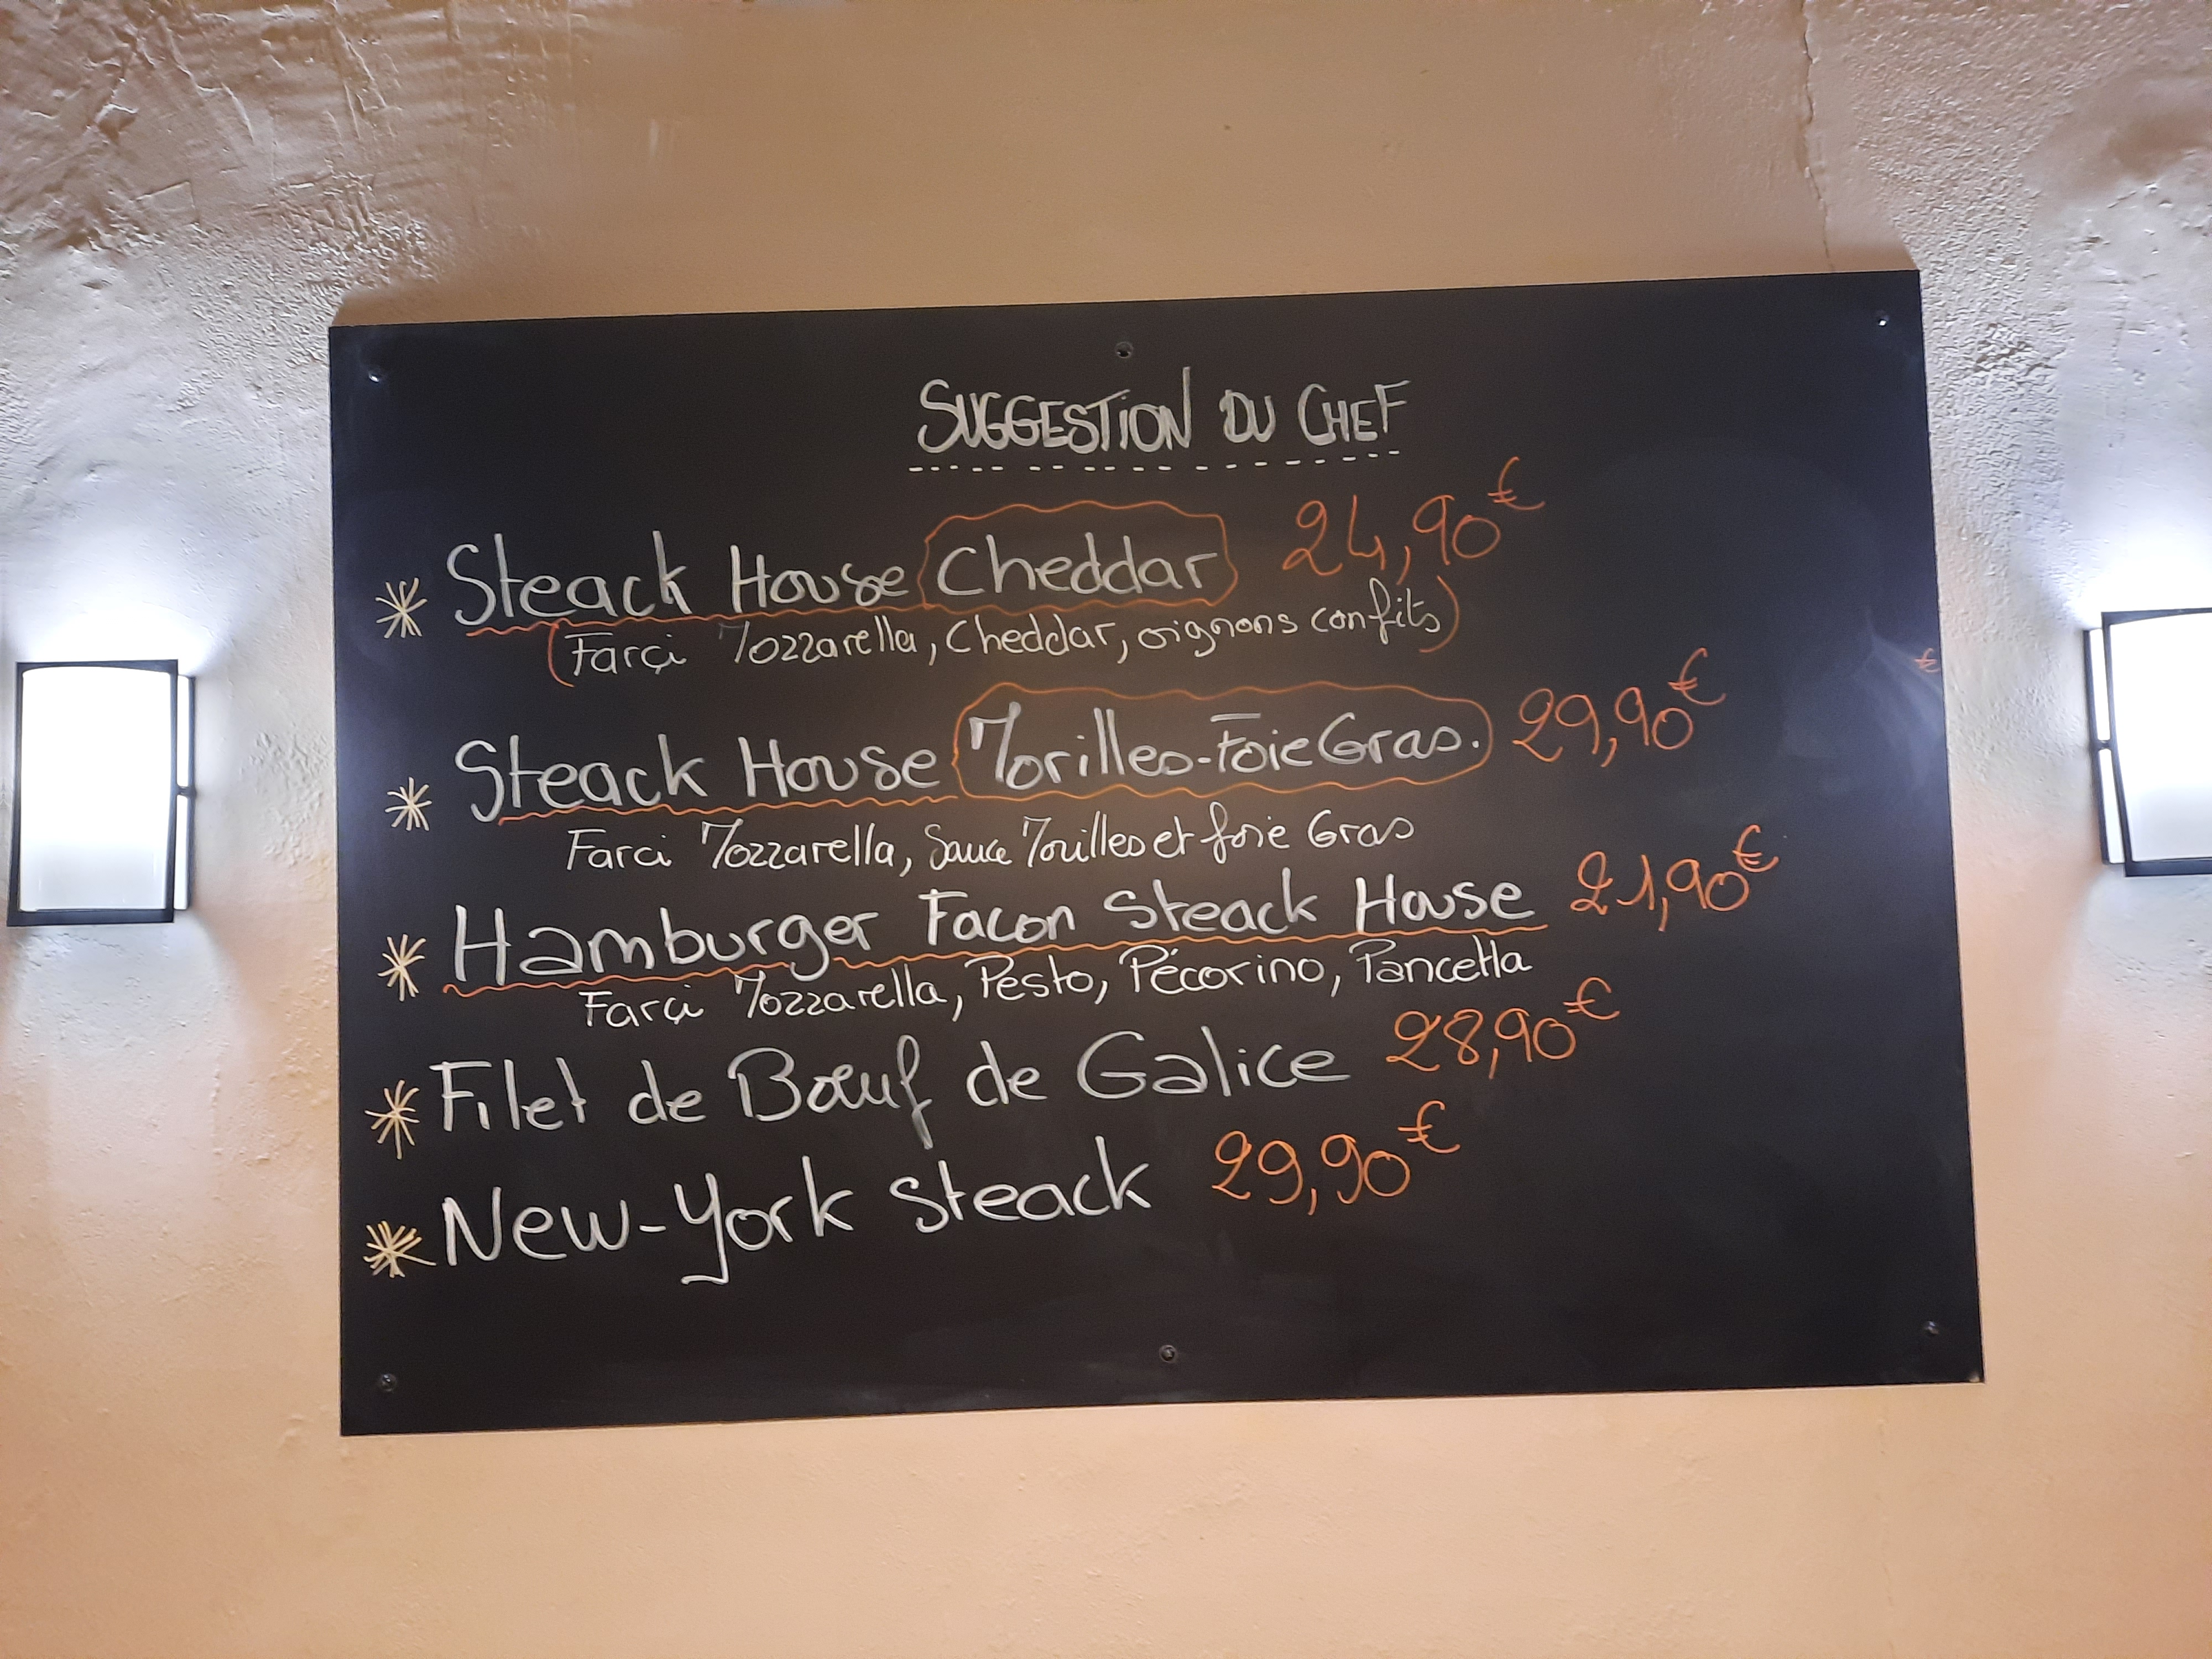 SUGGESTION DU CHEF
* Steack House Cheddar 24,90€
(Farçi Mozzarella, Cheddar, oignons confits)
* Steack House Morilles-Foie Gras. 29,90€
Farci Mozzarella, Sauce Morilles et foie Gras
* Hamburger Facon Steack House 21,90€
Farçi Mozzarella, Pesto, Pécorino, Pancetta
* Filet de Bœuf de Galice 28,90€
* New-York Steack 29,90€
€